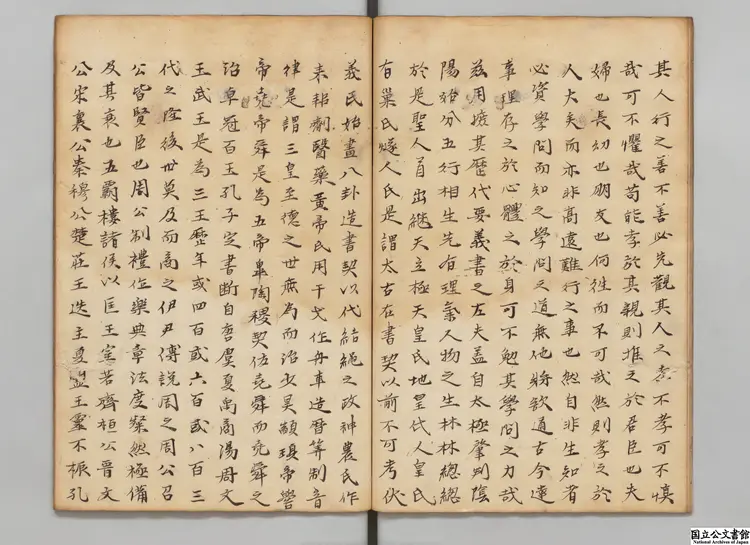 其人行之善不善必先觀其人之孝不孝可不慎
哉可不懼哉苟能孝於其親則推之於君臣也夫
婦也長幼也朋友也何徃而不可哉然則孝之於
人大矣而亦非高遠難行之事也然自非生知者
必資學問而知之學問之道無他將欲通古今達
事理存之於心體之於身可不勉其學問之力哉
茲用摭其歷代要義書之左夫盖自太極肇判陰
陽始分五行相生先有理氣人物之生林林總總
於是聖人首出継天立極天皇氏地皇代人皇氏
有巢氏燧人氏是謂太古在書契以前不可考伏
羲氏始畫八卦造書契以代結繩之政神農氏作
耒耜制醫藥黃帝氏用干戈作舟車造曆筭制音
律是謂三皇至德之世無為而治少昊顓頊帝嚳
帝堯帝舜是為五帝皐陶稷契佐堯舜而堯舜之
治卓冠百王孔子定書斷自唐虞夏禹商湯周文
王武王是為三王歷年或四百或六百或八百三
代之隆後世莫及而商之伊尹傅說周之周公召
公皆賢臣也周公制禮作樂典章法度粲然極備
及其衰也五霸樓諸侯以匡王室若齊桓公晉文
公宋襄公秦穆公楚莊王迭主夏盟王靈不振孔
国立公文書館
National Archives of Japan